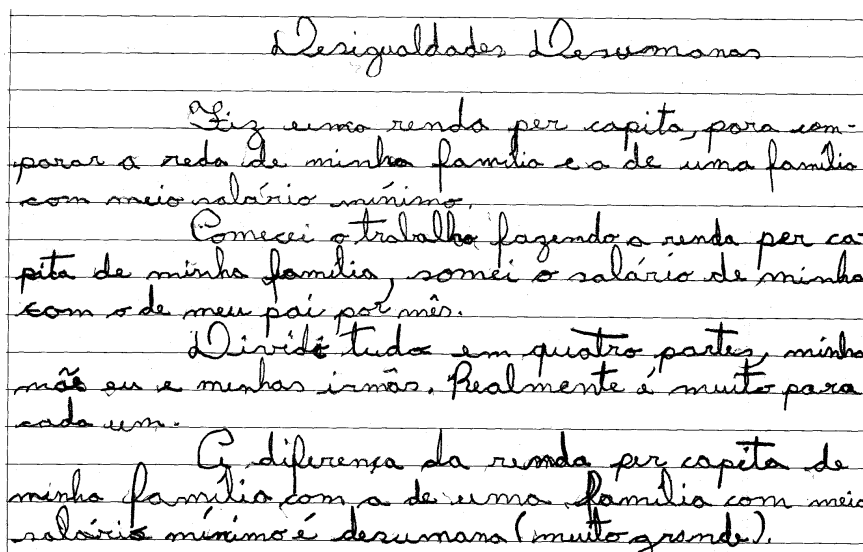 Desigualdades Desumanas
Fiz uma renda per capita, para com-
parar a reda de minha família e a de uma família
com meio salário mínimo.
Comecei o trabalho fazendo a renda per ca-
pita de minha família, somei o salário de minha
com o de meu pai por mês.
Dividi tudo em quatro partes, minha
mãe eu e minhas irmãs. Realmente é muito para
cada um.
A diferença da renda per capita de
minha família com a de uma família com meio
salário mínimo é desumana (muito grande).